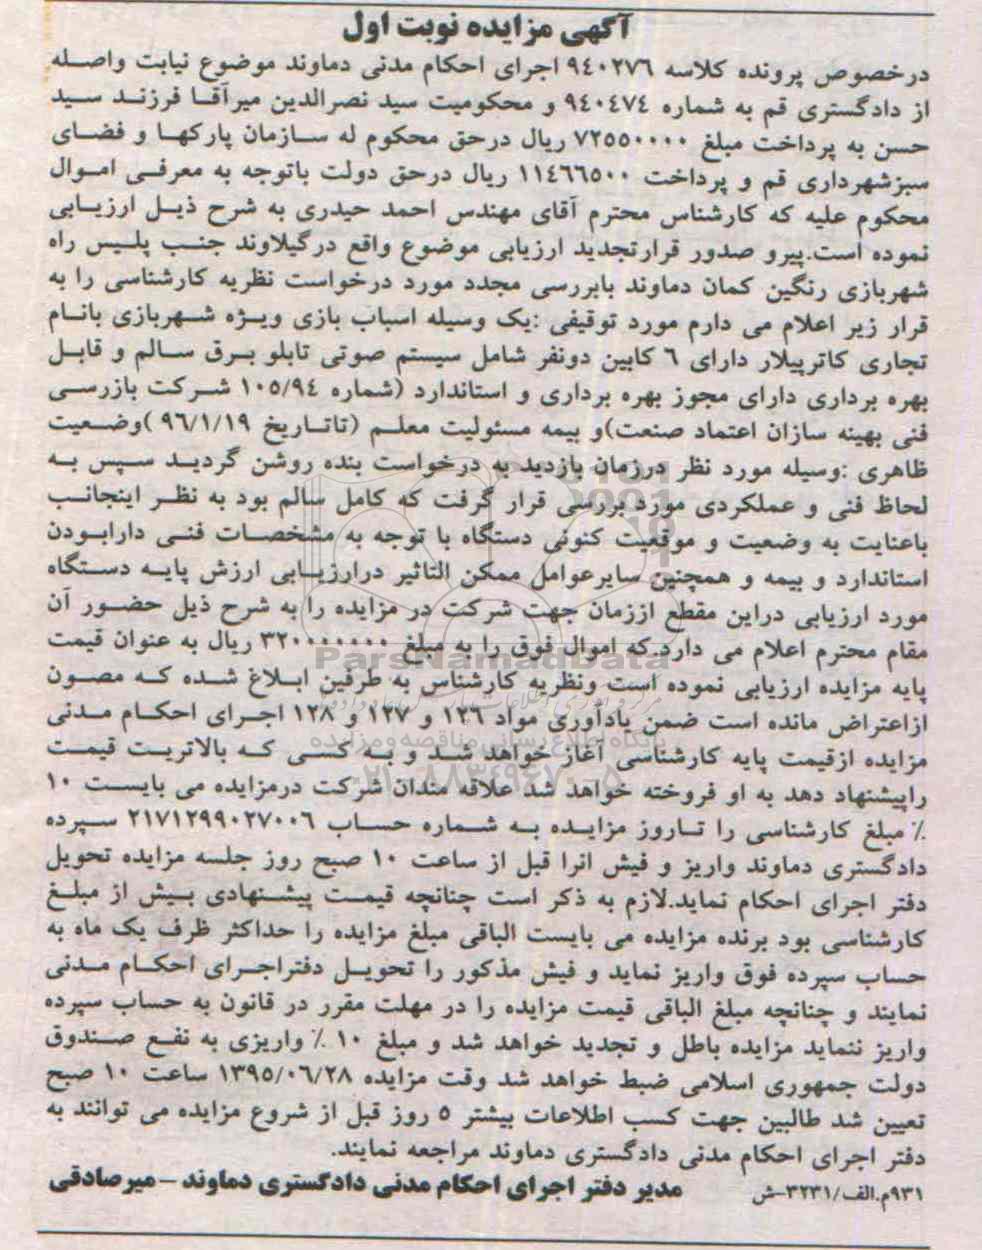 آگهی مزایده نوبت اول
درخصوص پرونده کلاسه ۹۴۰۲۷۶ اجرای احکام مدنی دماوند موضوع نیابت واصله
از دادگستری قم به شماره ۹۴۰۴۷۴ و محکومیت سید نصرالدین میرآقا فرزند سید
حسن به پرداخت مبلغ ۷۲۵۵۰۰۰۰ ریال درحق محکوم له سازمان پارکها و فضای
سبزشهرداری قم و پرداخت ۱۱۴۶۶۵۰۰ ریال درحق دولت باتوجه به معرفی اموال
محکوم علیه که کارشناس محترم آقای مهندس احمد حیدری به شرح ذیل ارزیابی
نموده است.پیرو صدور قرارتجدید ارزیابی موضوع واقع درگیلاوند جنب پلیس راه
شهربازی رنگین کمان دماوند بابررسی مجدد مورد درخواست نظریه کارشناسی را به
قرار زیر اعلام می دارم مورد توقیفی :یک وسیله اسباب بازی ویژه شهربازی بانام
تجاری کاترپیلار دارای ۶ کابین دونفر شامل سیستم صوتی تابلو برق سالم و قابل
بهره برداری دارای مجوز بهره برداری و استاندارد (شماره ۱۰۵/۹۴ شرکت بازرسی
فنی بهینه سازان اعتماد صنعت)و بیمه مسئولیت معلم (تاتاریخ ۹۶/۱/۱۹ )وضعیت
ظاهری :وسیله مورد نظر درزمان بازدید به درخواست بنده روشن گردید سپس به
لحاظ فنی و عملکردی مورد بررسی قرار گرفت که کامل سالم بود به نظر اینجانب
باعنایت به وضعیت و موقعیت کنونی دستگاه با توجه به مشخصات فنی دارابودن
استاندارد و بیمه و همچنین سایرعوامل ممکن التاثیر درارزیابی ارزش پایه دستگاه
مورد ارزیابی دراین مقطع اززمان جهت شرکت در مزایده را به شرح ذیل حضور آن
مقام محترم اعلام می دارد.که اموال فوق را به مبلغ ۳۲۰۰۰۰۰۰۰ ریال به عنوان قیمت
پایه مزایده ارزیابی نموده است ونظریه کارشناس به طرفین ابلاغ شده که مصون
ازاعتراض مانده است ضمن یادآوری مواد ۱۲۶ و ۱۲۷ و ۱۲۸ اجرای احکام مدنی
مزایده ازقیمت پایه کارشناسی آغاز خواهد شد و به کسی که بالاتریت قیمت
راپیشنهاد دهد به او فروخته خواهد شد علاقه مندان شرکت درمزایده می بایست ۱۰
٪ مبلغ کارشناسی را تاروز مزایده به شماره حساب ۲۱۷۱۲۹۹۰۲۷۰۰۶ سپرده
دادگستری دماوند واریز و فیش انرا قبل از ساعت ۱۰ صبح روز جلسه مزایده تحویل
دفتر اجرای احکام نماید.لازم به ذکر است چنانچه قیمت پیشنهادی بیش از مبلغ
کارشناسی بود برنده مزایده می بایست الباقی مبلغ مزایده را حداکثر ظرف یک ماه به
حساب سپرده فوق واریز نماید و فیش مذکور را تحویل دفتراجرای احکام مدنی
نمایند و چنانچه مبلغ الباقی قیمت مزایده را در مهلت مقرر در قانون به حساب سپرده
واریز ننماید مزایده باطل و تجدید خواهد شد و مبلغ ۱۰ ٪ واریزی به نفع صندوق
دولت جمهوری اسلامی ضبط خواهد شد وقت مزایده ۱۳۹۵/۰۶/۲۸ ساعت ۱۰ صبح
تعیین شد طالبین جهت کسب اطلاعات بیشتر ۵ روز قبل از شروع مزایده می توانند به
دفتر اجرای احکام مدنی دادگستری دماوند مراجعه نمایند.
۹۳۱م.الف/۳۲۳۱-ش مدیر دفتر اجرای احکام مدنی دادگستری دماوند – میرصادقی
ParsNamadData
پایگاه اطلاع رسانی مناقصه و مزایده
۰۲۱-۸۸۳۴۹۶۷۰-۵